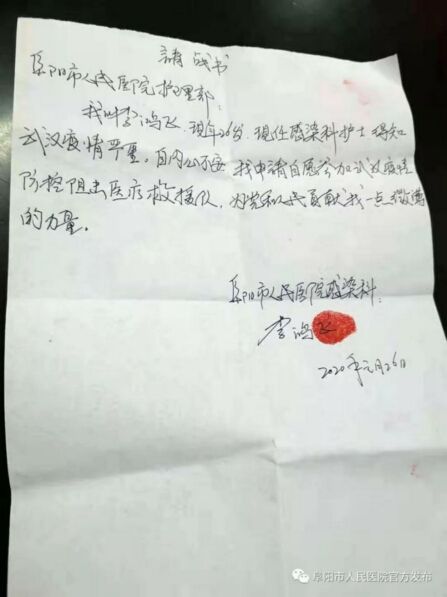 请战书
阜阳市人民医院护理部:
我叫李鸿飞,现年26岁,现任感染科护士得知
武汉疫情严重,自内心不安,我申请自愿参加武汉疫情
防控阻击医疗救援队,为党和人民贡献我一点微薄
的力量。
阜阳市人民医院感染科:
李鸿飞
2020年元月26日
阜阳市人民医院官方发布